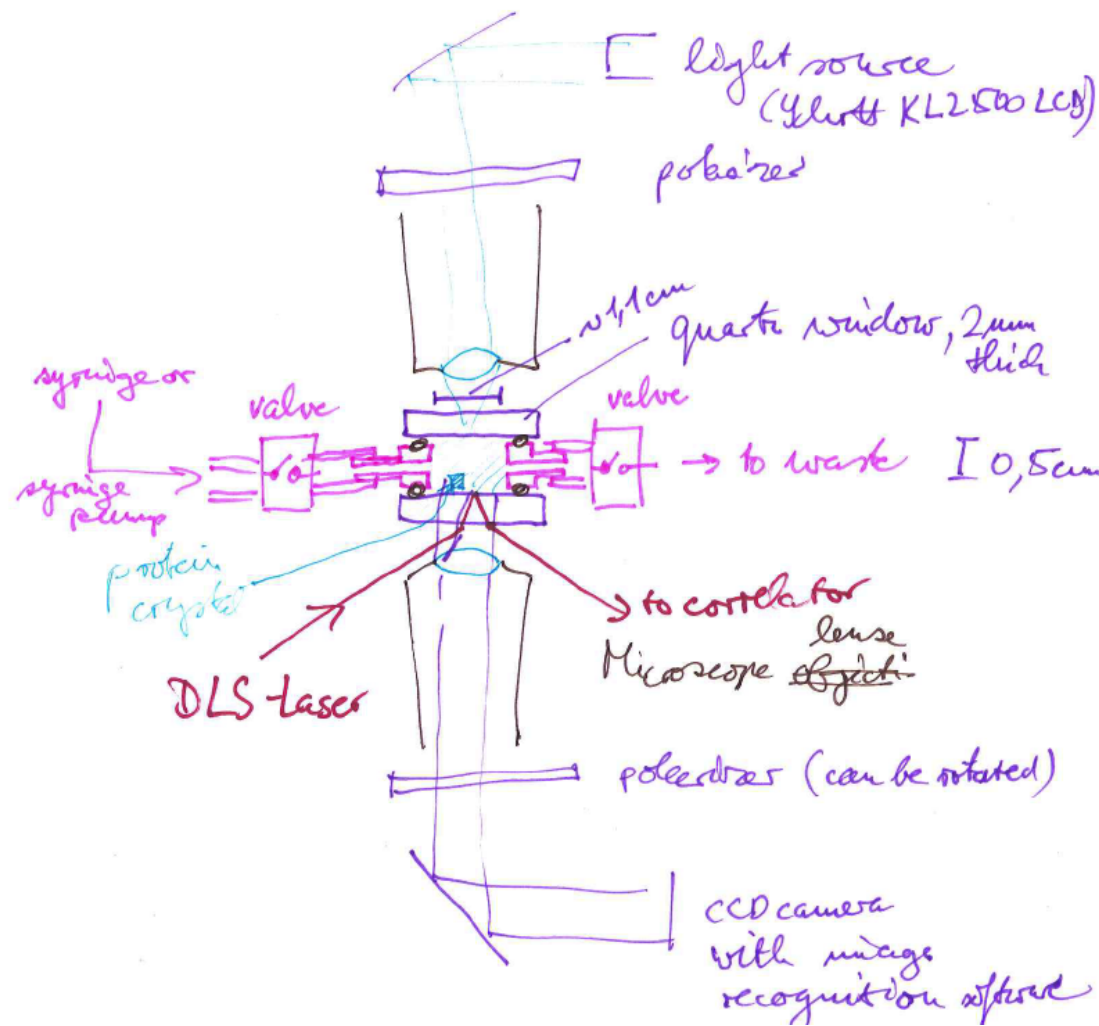 light source
(Schott KL2500 LCD)
polarizer
~1,1cm
quartz window, 2mm
thick
syringe or
syringe
pump
valve
valve
→ to waste
I 0,5cm
protein
crystal
DLS-Laser
to correlator
lense
Microscope objecti
polarizer (can be rotated)
CCD camera
with image
recognition software